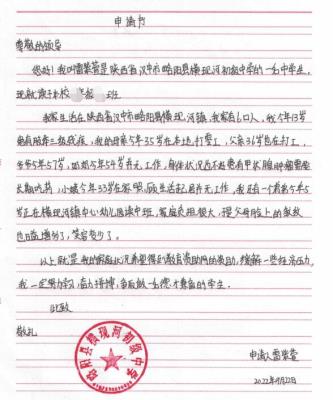 申请书
尊敬的领导
您好！我叫雷紫萱是陕西省汉中市略阳县横现河初级中学的一名中学生，
现就读于本校 年级 班
我家生活在陕西省汉中市略阳县横现河镇，我家有6口人，我今年13岁
患有肢体三级残疾，我的母亲今年35岁在本地打零工，父亲36岁也在打工，
爷爷今年57岁，奶奶今年54岁并无工作，身体状况也不是 患有甲状腺肿瘤需要
长期吃药，小姨今年33岁在家 照顾生活起居并无工作，我还有一个弟弟今年5
岁正在横现河镇中心幼儿园读中班，家庭负担很大，现父母脸上的皱纹
也日益增多了，笑容变少了。
以上就是我的家庭状况希望得到教育资助网的资助，缓解一些经济压力，
我一定努力学习，奋力拼搏，争取做一名德才兼备的学生。
此致
敬礼
略阳县横现河初级中学
申请人雷紫萱
2022年9月22日